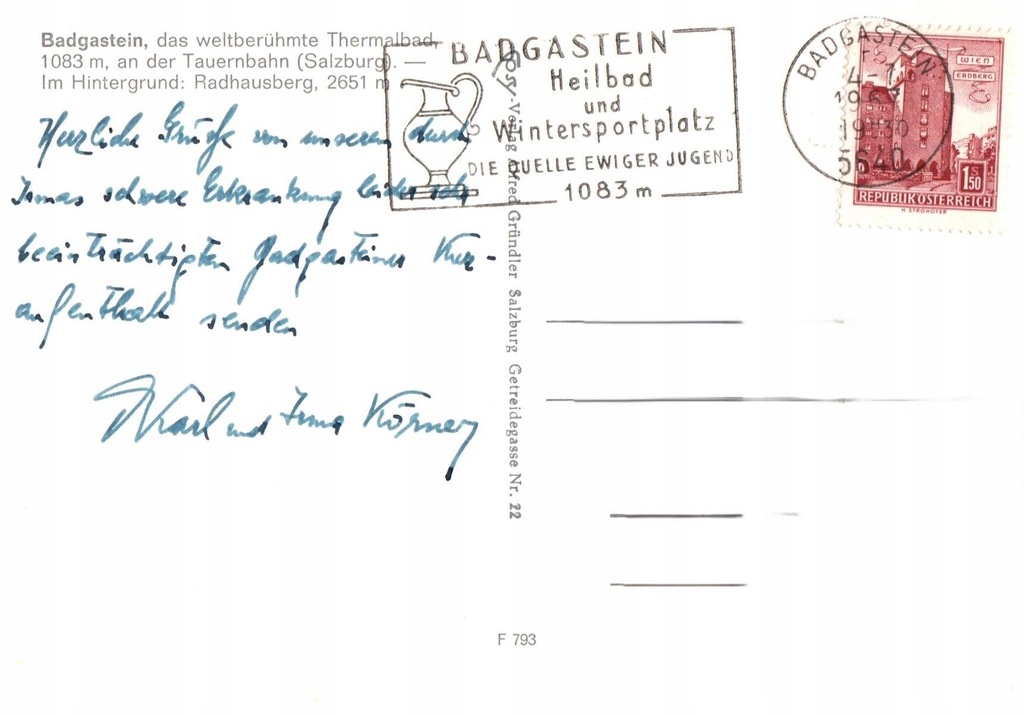 Badgastein, das weltberühmte Thermalbad,
1083 m, an der Tauernbahn (Salzburg). —
Im Hintergrund: Radhausberg, 2651 m
Herzliche Grüße von unserem durch
Irmas schwere Erkrankung leider sehr
beeinträchtigten Badgasteiner Kur-
aufenthalt senden
Karl und Irma Körner
BADGASTEIN
Heilbad
und
Wintersportplatz
DIE QUELLE EWIGER JUGEND
1083 m
-Verlag Alfred Gründler Salzburg Getreidegasse Nr. 22
BADGASTEIN
5640
WIEN
ERDBERG
S
1.50
REPUBLIK ÖSTERREICH
H. STROHOFER
F 793